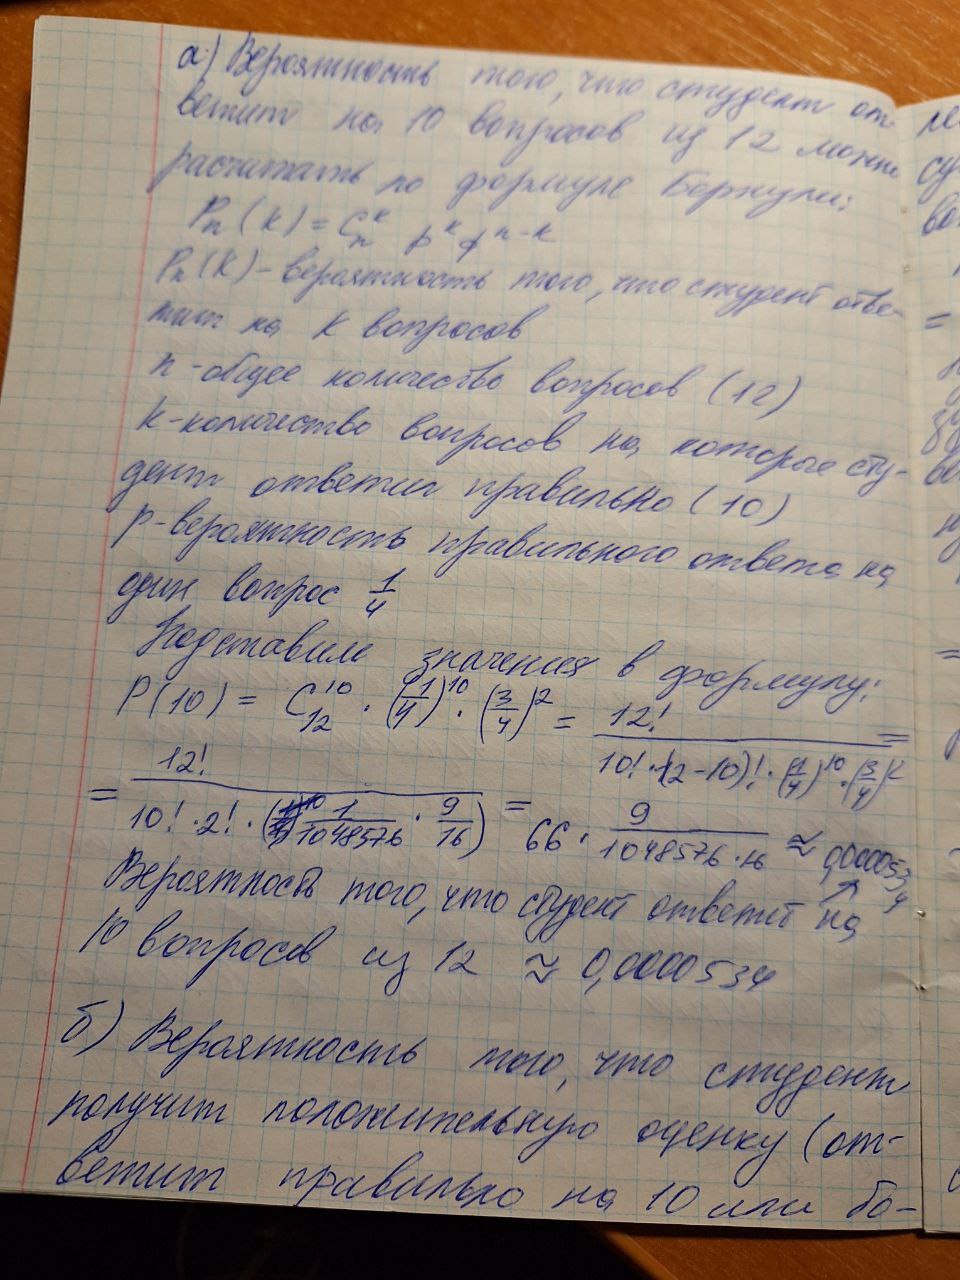 а) Вероятность того, что студент от-
ветит на 10 вопросов из 12 можно
расчитать по формуле Бернули:
Pₙ(k) = Cₙᵏ pᵏ qⁿ⁻ᵏ
Pₙ(k) - вероятность того, что студент отве-
тит на k вопросов
n - общее количество вопросов (12)
k - количество вопросов на которые сту-
дент ответил правильно (10)
p - вероятность правильного ответа на
один вопрос 1/4
Подставим значения в формулу:
P(10) = C₁₂¹⁰ · (1/4)¹⁰ · (3/4)² = 12! / 10! · (12-10)! · (1/4)¹⁰ · (3/4)² =
= 12! / 10! · 2! · (1/1048576 · 9/16) = 66 · 9 / 1048576 · 16 ≈ 0,0000534
Вероятность того, что студент ответит на
10 вопросов из 12 ≈ 0,0000534
б) Вероятность того, что студент
получит положительную оценку (от-
ветит правильно на 10 или бо-